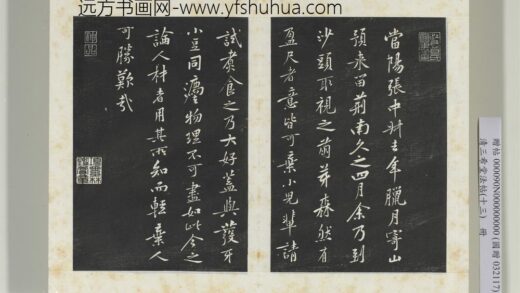 远方书画网-www.yfshuhua.com
當陽張中叔去年臘月寄山
預來留荊南久之四月余乃到
沙頭取視之萌芽森然有
盈尺者意皆可棄小兒輩請
試煮食之乃大好蓋與蔓牙
小豆同瀘物理不可盡如此今之
論人材者用其所知而輕棄人
可勝歎哉
赠帖 000090N000000000 (圓贈 032117)
清三希堂法帖(十三) 冊